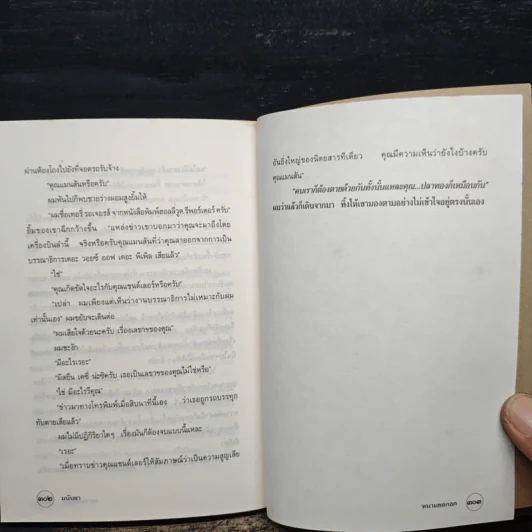 ผ่านห้องโถงไปยังที่จอดรถรับจ้าง
"คุณแมนสันหรือครับ"
ผมหันไปก็พบชายร่างผอมสูงยิ้มให้
"ผมชื่อเทอรี่ รอเจอรส์ จากหนังสือพิมพ์ฮอลลีวูด รีพอร์ตเตอร์ ครับ"
ยิ้มของเขาฉีกกว้างขึ้น "แหล่งข่าวเขาบอกมาว่าคุณจะมาถึงโดย
เครื่องบินลำนี้ จริงหรือครับคุณแมนสันที่ว่าคุณลาออกจากการเป็น
บรรณาธิการเดอะ วอยซ์ ออฟ เดอะ พีเพิล เสียแล้ว"
"ใช่"
"คุณเกิดขัดใจอะไรกับคุณแชนด์เลอร์หรือครับ"
"เปล่า ผมเพียงแต่เห็นว่างานบรรณาธิการไม่เหมาะกับผม
เท่านั้นเอง" ผมขยับจะเดินต่อ
"ผมเสียใจด้วยนะครับ เรื่องเลขาของคุณ"
ผมชะงัก
"มีอะไรเรอะ"
"มิสยีน เคซี่ น่ะซิครับ เธอเป็นเลขาของคุณไม่ใช่หรือ"
"ใช่ มีอะไรรึคุณ"
"ข่าวมาทางโทรพิมพ์เมื่อสิบนาทีนี้เอง ว่าเธอถูกรถบรรทุก
ทับตายเสียแล้ว"
ผมไม่มีปฏิกิริยาใดๆ เรื่องมันก็ต้องจบแบบนี้แหละ
"เรอะ"
"เมื่อทราบข่าวคุณแชนด์เลอร์ให้สัมภาษณ์ว่าเป็นความสูญเสีย
๓๐๒ มนันยา
อันยิ่งใหญ่ของนิตยสารทีเดียว คุณมีความเห็นว่ายังไงบ้างครับ
คุณแมนสัน"
"คนเราก็ต้องตายด้วยกันทั้งนั้นแหละคุณ...ปลาทองก็เหมือนกัน"
ผมว่าแล้วก็เดินจากมา ทิ้งให้เขามองตามอย่างไม่เข้าใจอยู่ตรงนั้นเอง
๓๐๓